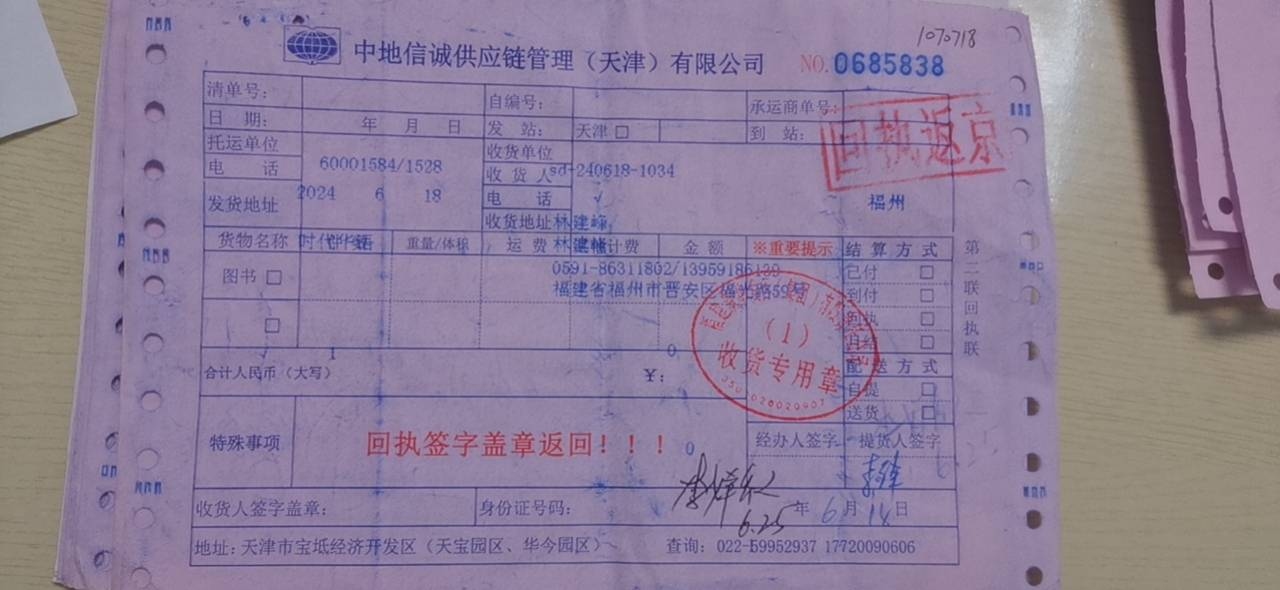 1070718
中地信诚供应链管理（天津）有限公司 NO.0685838
清单号： 自编号： 承运商单号：
日 期： 年 月 日 发 站： 天津 □ 到 站：
回执返京
托运单位 收货单位
电 话 60001584/1528 收 货 人 sd-240618-1034
发货地址 2024 6 18 电 话 √ 福州
收货地址 林建峰
货物名称 重量/体积 运 费 金 额 ※重要提示 结 算 方 式
图书 □ 0591-86311802/13959186139 已付 □
福建省福州市晋安区福光路59号 到付 □
□ 回执 □
月结 □
(1)
收货专用章
√ 1 0
合计人民币（大写） ¥： 配 送 方 式
自提 □
送货 □
特殊事项 回执签字盖章返回！！！ 0 经办人签字 提货人签字
收货人签字盖章： 身份证号码： 6.25 年 6 月 18 日
地址：天津市宝坻经济开发区（天宝园区、华今园区） 查询：022-59952937 17720090606
第二联回执联